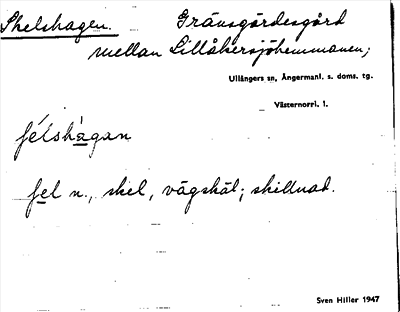 Skelshagen. Gränsgärdesgård
mellan Lillåkersjöhemmanen;
Ullångers sn, Ångermanl. s. doms. tg.
Västernorrl. l.
félshàgan
fel n., skel, vägskäl; skillnad.
Sven Hiller 1947